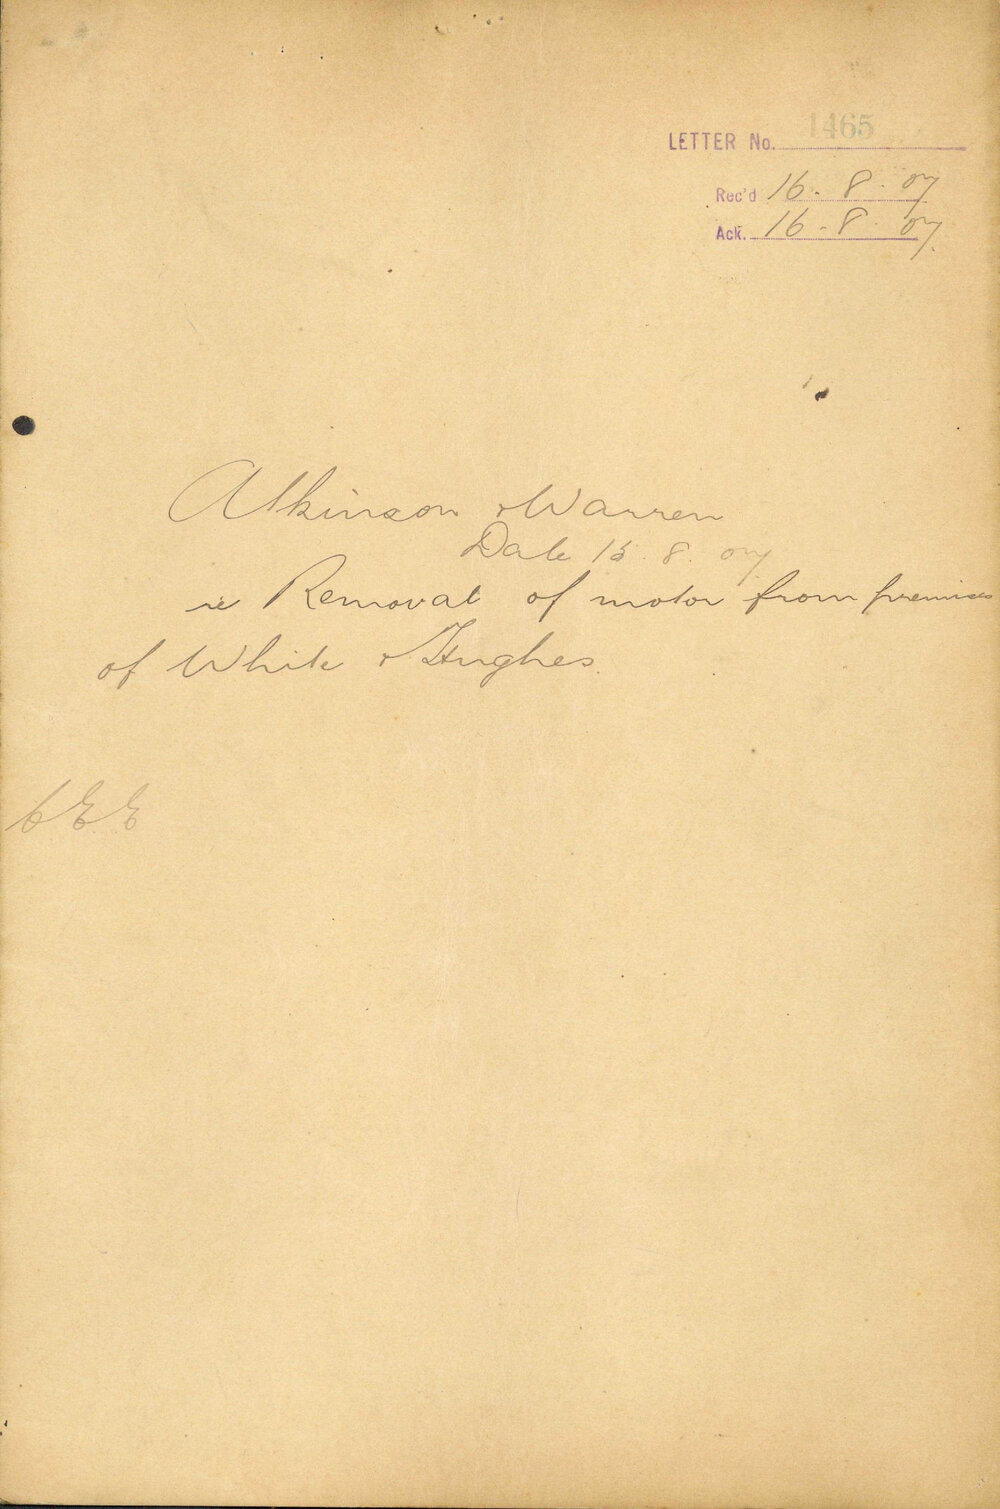 LETTER No. 1465
Rec'd 16-8-07
Ack. 16-8-07
Atkinson & Warren
Date 15.8.07
re Removal of motor from premises
of White & Hughes.
CEE